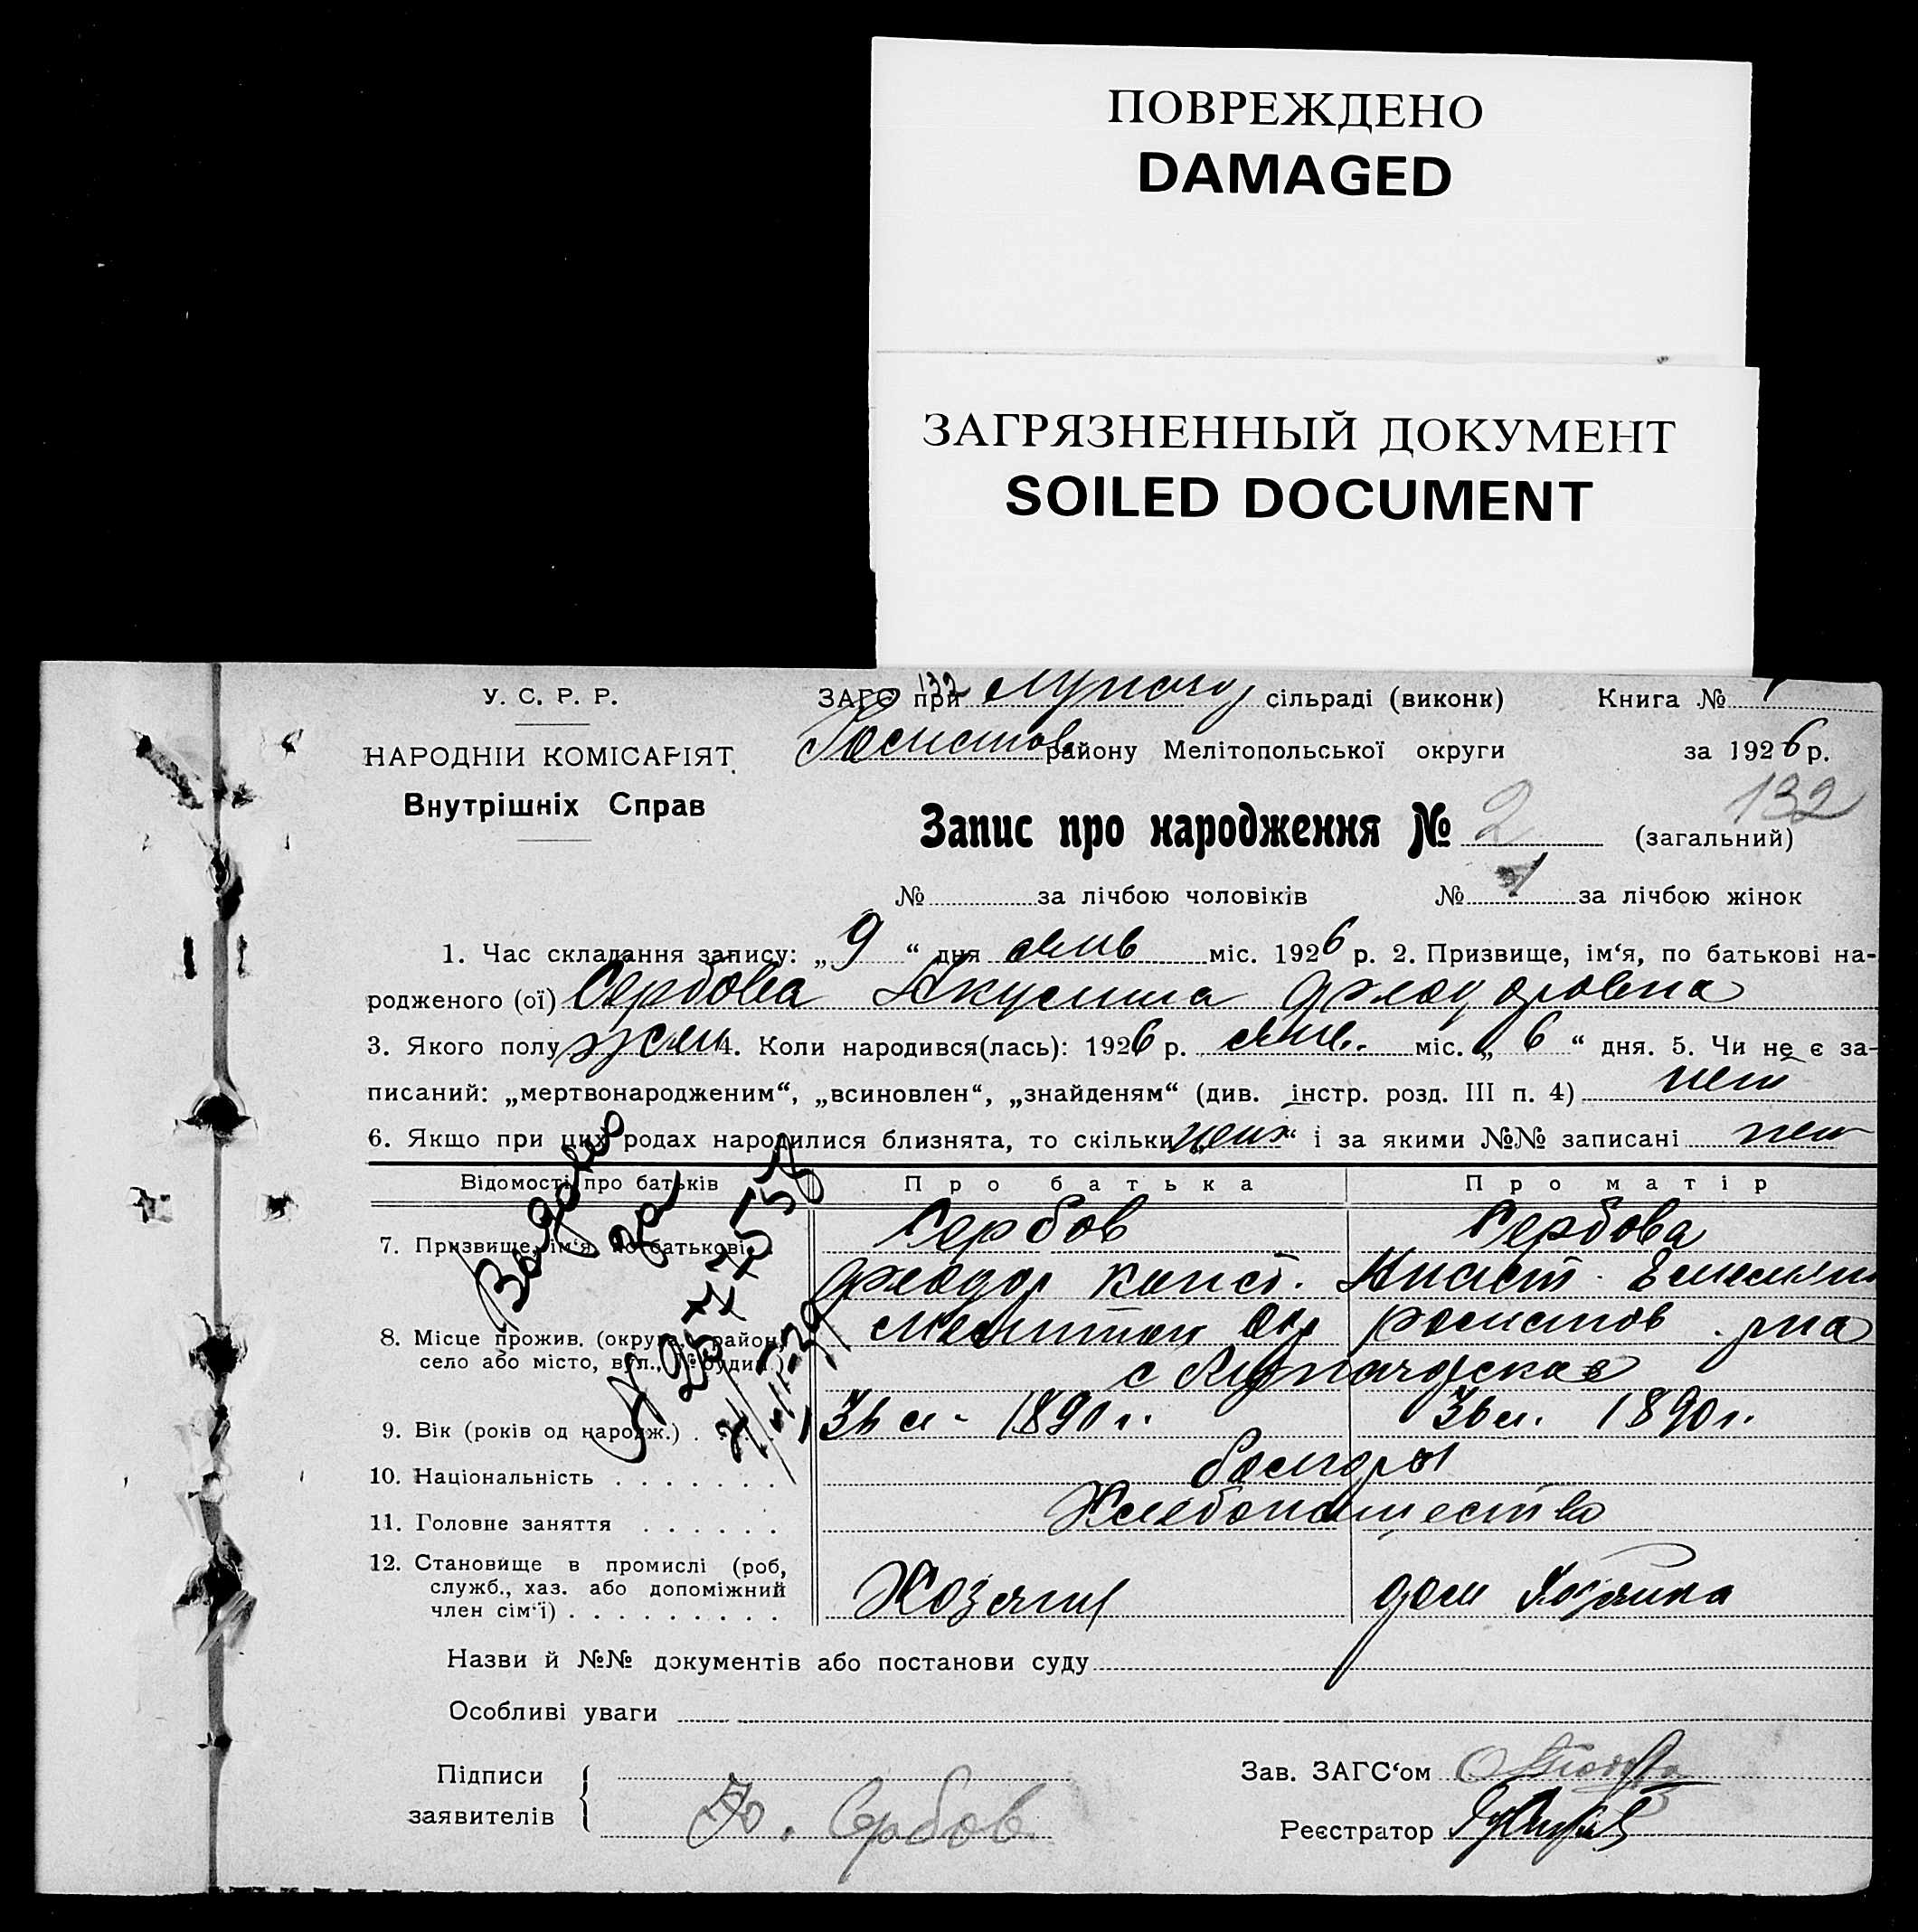 ПОВРЕЖДЕНО
DAMAGED
ЗАГРЯЗНЕННЫЙ ДОКУМЕНТ
SOILED DOCUMENT
У. С. Р. Р.
НАРОДНІЙ КОМІСАРІЯТ
Внутрішніх Справ
132
ЗАГС при сільраді (виконк) Книга №
району Мелітопольської округи за 1926 р.
132
Запис про народження № 2 (загальний)
№ за лічбою чоловіків № 1 за лічбою жінок
1. Час складання запису: „9“ дня янв міс. 1926 р. 2. Призвище, ім‘я, по батькові на-
родженого (ої) Сербова Акулина Феодоровна
3. Якого полу жен 4. Коли народився(лась): 1926 р. янв. міс. „6“ дня. 5. Чи не є за-
писаний: „мертвонародженим“, „всиновлен“, „знайденям“ (див. інстр. розд. III п. 4) нет
6. Якщо при цих родах народилися близнята, то скільки „ “ і за якими №№ записані нет
Відомості про батьків Про батька Про матір
7. Призвище, ім‘я, по батькові Сербов Сербова
Феодор Конст. Анаст. Емельян
8. Місце прожив. (округа, район, Мелитоп Окр
село або місто, вул., № будин.) с
9. Вік (років од народж.) 36 л. 1890 г. 36 л. 1890 г.
10. Національність болгары
11. Головне заняття Хлебопашество
12. Становище в промислі (роб,
служб., хаз. або допоміжний
член сім‘ї) Хозяин дом Хозяйка
Выдано
Назви й №№ документів або постанови суду
Особливі уваги
Підписи
заявителів Сербов
Зав. ЗАГС‘ом
Реєстратор